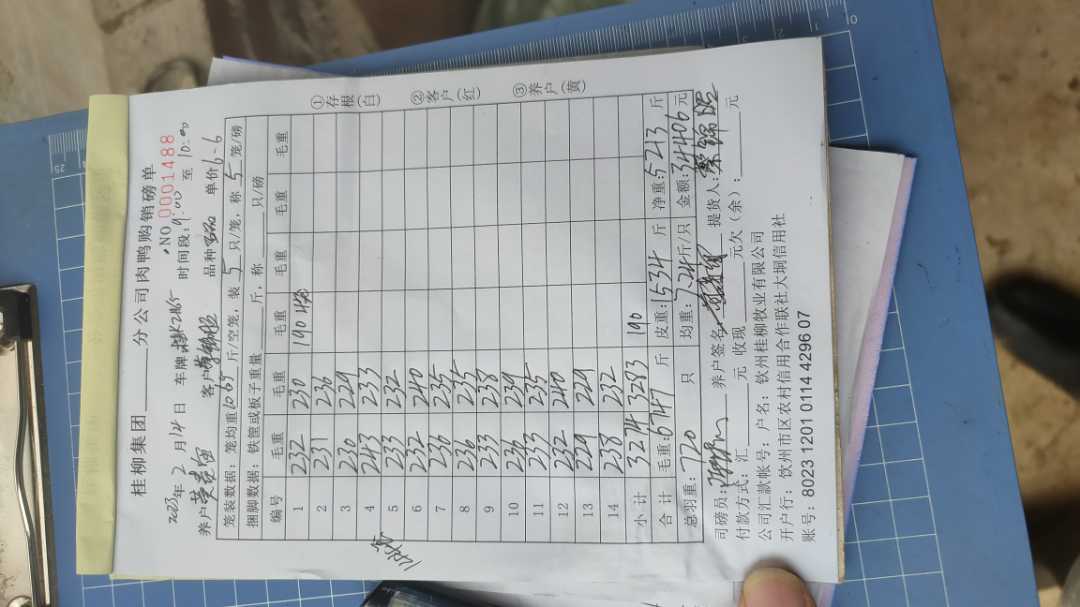 桂柳集团____分公司肉鸭购销磅单
NO 0001488
2023年 2月14日 车牌 时间段: 9:00 至 10:00
养户 客户 品种 单价 6-6
笼装数据: 笼均重 10.65 斤/空笼, 装 5 只/笼, 称 5 笼/磅
捆脚数据: 铁筐或板子重量____斤, 称____只/磅
编号 毛重 毛重 毛重 毛重 毛重 毛重
1 232 230 190
2 231 236
3 230 229
4 243 233
5 233 232
6 232 240
7 236 235
8 236 235
9 233 238
10 236 239
11 233 235
12 232 240
13 229 229
14 238 232
小计 3274 3283 190
合计 毛重: 6747 斤 皮重: 1534 斤 净重: 5213 斤
总羽重: 720 只 均重: 7.24 斤/只 金额: 34406 元
司磅员: 养户签名: 提货人:
付款方式: 汇____元 收现____元欠(余): ____元
公司汇款帐号: 户名: 钦州桂柳牧业有限公司
开户行: 钦州市区农村信用合作联社大垌信用社
账号: 8023 1201 0114 4296 07
①存根(白) ②客户(红) ③养户(黄)